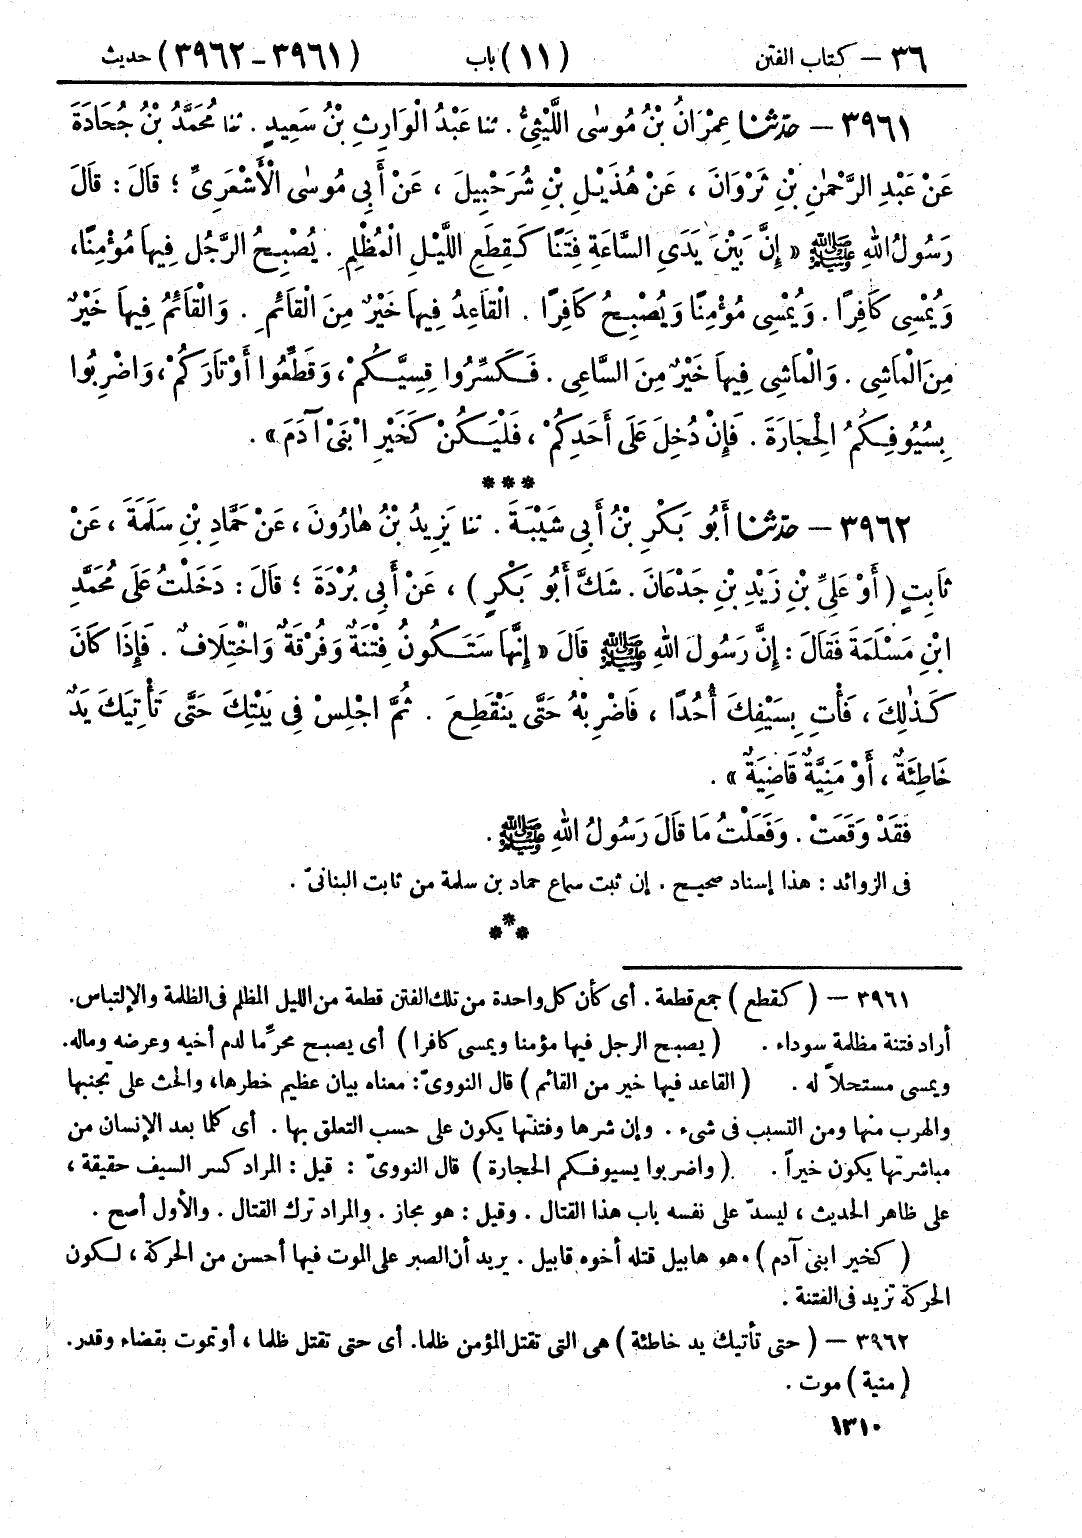 ٣٦ – كتاب الفتن (١١) باب (٣٩٦١-٣٩٦٢) حديث
٣٩٦١ – حدّثنا عِمْرَانُ بْنُ مُوسَى اللَّيْثِيُّ . ثنا عَبْدُ الْوَارِثِ بْنُ سَعِيدٍ . ثنا مُحَمَّدُ بْنُ جُحَادَةَ
عَنْ عَبْدِ الرَّحْمٰنِ بْنِ ثَرْوَانَ ، عَنْ هُذَيْلِ بْنِ شُرَحْبِيلَ ، عَنْ أَبِي مُوسٰى الْأَشْعَرِيِّ ؛ قَالَ : قَالَ
رَسُولُ اللهِ ﷺ « إِنَّ بَيْنَ يَدَيِ السَّاعَةِ فِتَنًا كَقِطَعِ اللَّيْلِ الْمُظْلِمِ . يُصْبِحُ الرَّجُلُ فِيهَا مُؤْمِنًا،
وَيُمْسِي كَافِرًا . وَيُمْسِي مُؤْمِنًا وَيُصْبِحُ كَافِرًا . الْقَاعِدُ فِيهَا خَيْرٌ مِنَ الْقَائِمِ . وَالْقَائِمُ فِيهَا خَيْرٌ
مِنَ الْمَاشِي . وَالْمَاشِي فِيهَا خَيْرٌ مِنَ السَّاعِي . فَكَسِّرُوا قِسِيَّكُمْ ، وَقَطِّعُوا أَوْتَارَكُمْ ، وَاضْرِبُوا
بِسُيُوفِكُمُ الْحِجَارَةَ . فَإِنْ دُخِلَ عَلَى أَحَدِكُمْ ، فَلْيَكُنْ كَخَيْرِ ابْنَيْ آدَمَ » .
***
٣٩٦٢ – حدّثنا أَبُو بَكْرِ بْنُ أَبِي شَيْبَةَ . ثنا يَزِيدُ بْنُ هٰارُونَ ، عَنْ حَمَّادِ بْنِ سَلَمَةَ ، عَنْ
ثَابِتٍ ( أَوْ عَلِيِّ بْنِ زَيْدِ بْنِ جَدْعَانَ . شَكَّ أَبُو بَكْرٍ ) ، عَنْ أَبِي بُرْدَةَ ؛ قَالَ : دَخَلْتُ عَلَى مُحَمَّدِ
ابْنِ مَسْلَمَةَ فَقَالَ : إِنَّ رَسُولَ اللهِ ﷺ قَالَ « إِنَّهَا سَتَكُونُ فِتْنَةٌ وَفُرْقَةٌ وَاخْتِلَافٌ . فَإِذَا كَانَ
كَذٰلِكَ ، فَأْتِ بِسَيْفِكَ أُحُدًا ، فَاضْرِبْهُ حَتَّى يَنْقَطِعَ . ثُمَّ اجْلِسْ فِي بَيْتِكَ حَتَّى تَأْتِيَكَ يَدٌ
خَاطِئَةٌ ، أَوْ مَنِيَّةٌ قَاضِيَةٌ » .
فَقَدْ وَقَعَتْ . وَفَعَلْتُ مَا قَالَ رَسُولُ اللهِ ﷺ .
فى الزوائد : هذا إسناد صحيح . إن ثبت سماع حماد بن سلمة من ثابت البنانىّ .
***
٣٩٦١ – ( كقطع ) جمع قطعة . أى كأن كل واحدة من تلك الفتن قطعة من الليل المظلم فى الظلمة والإلتباس.
أراد فتنة مظلمة سوداء . ( يصبح الرجل فيها مؤمنا ويمسى كافرا ) أى يصبح محرِّما لدم أخيه وعرضه وماله.
ويمسى مستحلاً له . ( القاعد فيها خير من القائم ) قال النووىّ : معناه بيان عظيم خطرها، والحث على تجنبها
والهرب منها ومن التسبب فى شىء . وإن شرها وفتنتها يكون على حسب التعلق بها . أى كلما بعد الإنسان من
مباشرتها يكون خيراً . ( واضربوا بسيوفكم الحجارة ) قال النووىّ : قيل : المراد كسر السيف حقيقة ،
على ظاهر الحديث ، ليسدّ على نفسه باب هذا القتال . وقيل : هو مجاز . والمراد ترك القتال . والأول أصح .
( كخير ابنى آدم ) هو هابيل قتله أخوه قابيل . يريد أن الصبر على الموت فيها أحسن من الحركة ، لكون
الحركة تزيد فى الفتنة .
٣٩٦٢ – ( حتى تأتيك يد خاطئة ) هى التى تقتل المؤمن ظلما. أى حتى تقتل ظلما ، أو تموت بقضاء وقدر.
( منية ) موت .
١٣١٠